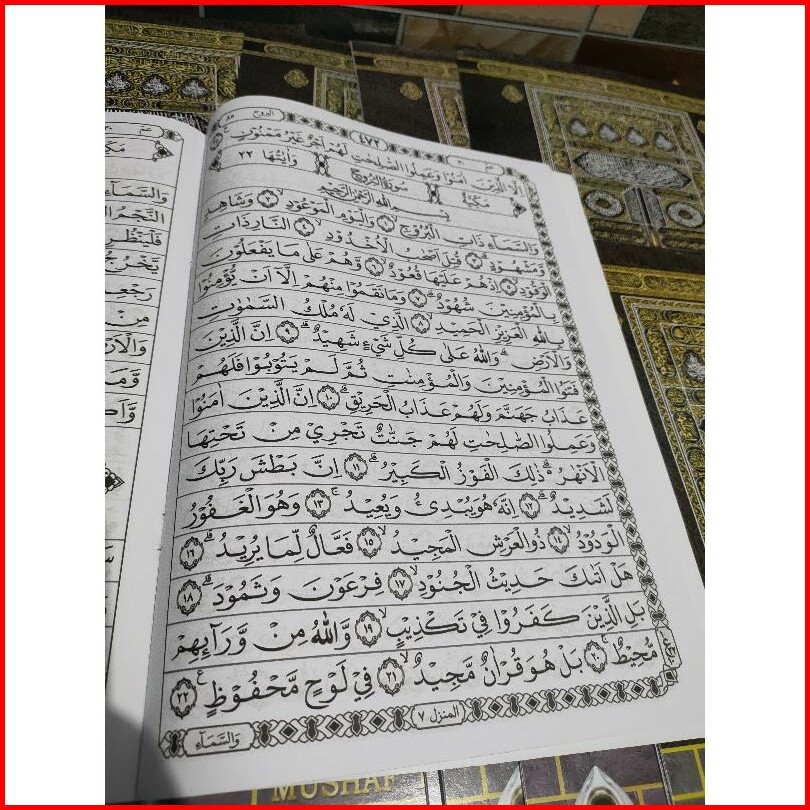 البروج ٨٥
٤٧٢
عم ٣٠
اِلَّا الَّذِيْنَ اٰمَنُوْا وَعَمِلُوا الصّٰلِحٰتِ لَهُمْ اَجْرٌ غَيْرُ مَمْنُوْنٍ
مَكِّيَّةٌ
سُوْرَةُ الْبُرُوْجِ
وَاٰيٰتُهَا ٢٢
بِسْمِ اللّٰهِ الرَّحْمٰنِ الرَّحِيْمِ
وَالسَّمَآءِ ذَاتِ الْبُرُوْجِ ١ وَالْيَوْمِ الْمَوْعُوْدِ ٢ وَشَاهِدٍ
وَّمَشْهُوْدٍ ٣ قُتِلَ اَصْحٰبُ الْاُخْدُوْدِ ٤ النَّارِ ذَاتِ
الْوَقُوْدِ ٥ اِذْ هُمْ عَلَيْهَا قُعُوْدٌ ٦ وَّهُمْ عَلٰى مَا يَفْعَلُوْنَ
بِالْمُؤْمِنِيْنَ شُهُوْدٌ ٧ وَمَا نَقَمُوْا مِنْهُمْ اِلَّآ اَنْ يُّؤْمِنُوْا
بِاللّٰهِ الْعَزِيْزِ الْحَمِيْدِ ٨ الَّذِيْ لَهٗ مُلْكُ السَّمٰوٰتِ
وَالْاَرْضِ وَاللّٰهُ عَلٰى كُلِّ شَيْءٍ شَهِيْدٌ ٩ اِنَّ الَّذِيْنَ
فَتَنُوا الْمُؤْمِنِيْنَ وَالْمُؤْمِنٰتِ ثُمَّ لَمْ يَتُوْبُوْا فَلَهُمْ
عَذَابُ جَهَنَّمَ وَلَهُمْ عَذَابُ الْحَرِيْقِ ١٠ اِنَّ الَّذِيْنَ اٰمَنُوْا
وَعَمِلُوا الصّٰلِحٰتِ لَهُمْ جَنّٰتٌ تَجْرِيْ مِنْ تَحْتِهَا
الْاَنْهٰرُ ذٰلِكَ الْفَوْزُ الْكَبِيْرُ ١١ اِنَّ بَطْشَ رَبِّكَ
لَشَدِيْدٌ ١٢ اِنَّهٗ هُوَ يُبْدِئُ وَيُعِيْدُ ١٣ وَهُوَ الْغَفُوْرُ
الْوَدُوْدُ ١٤ ذُو الْعَرْشِ الْمَجِيْدُ ١٥ فَعَّالٌ لِّمَا يُرِيْدُ ١٦
هَلْ اَتٰىكَ حَدِيْثُ الْجُنُوْدِ ١٧ فِرْعَوْنَ وَثَمُوْدَ ١٨
بَلِ الَّذِيْنَ كَفَرُوْا فِيْ تَكْذِيْبٍ ١٩ وَّاللّٰهُ مِنْ وَّرَآئِهِمْ
مُّحِيْطٌ ٢٠ بَلْ هُوَ قُرْاٰنٌ مَّجِيْدٌ ٢١ فِيْ لَوْحٍ مَّحْفُوْظٍ ٢٢
المنزل ٧
وَالسَّمَآءِ
MUSHAF